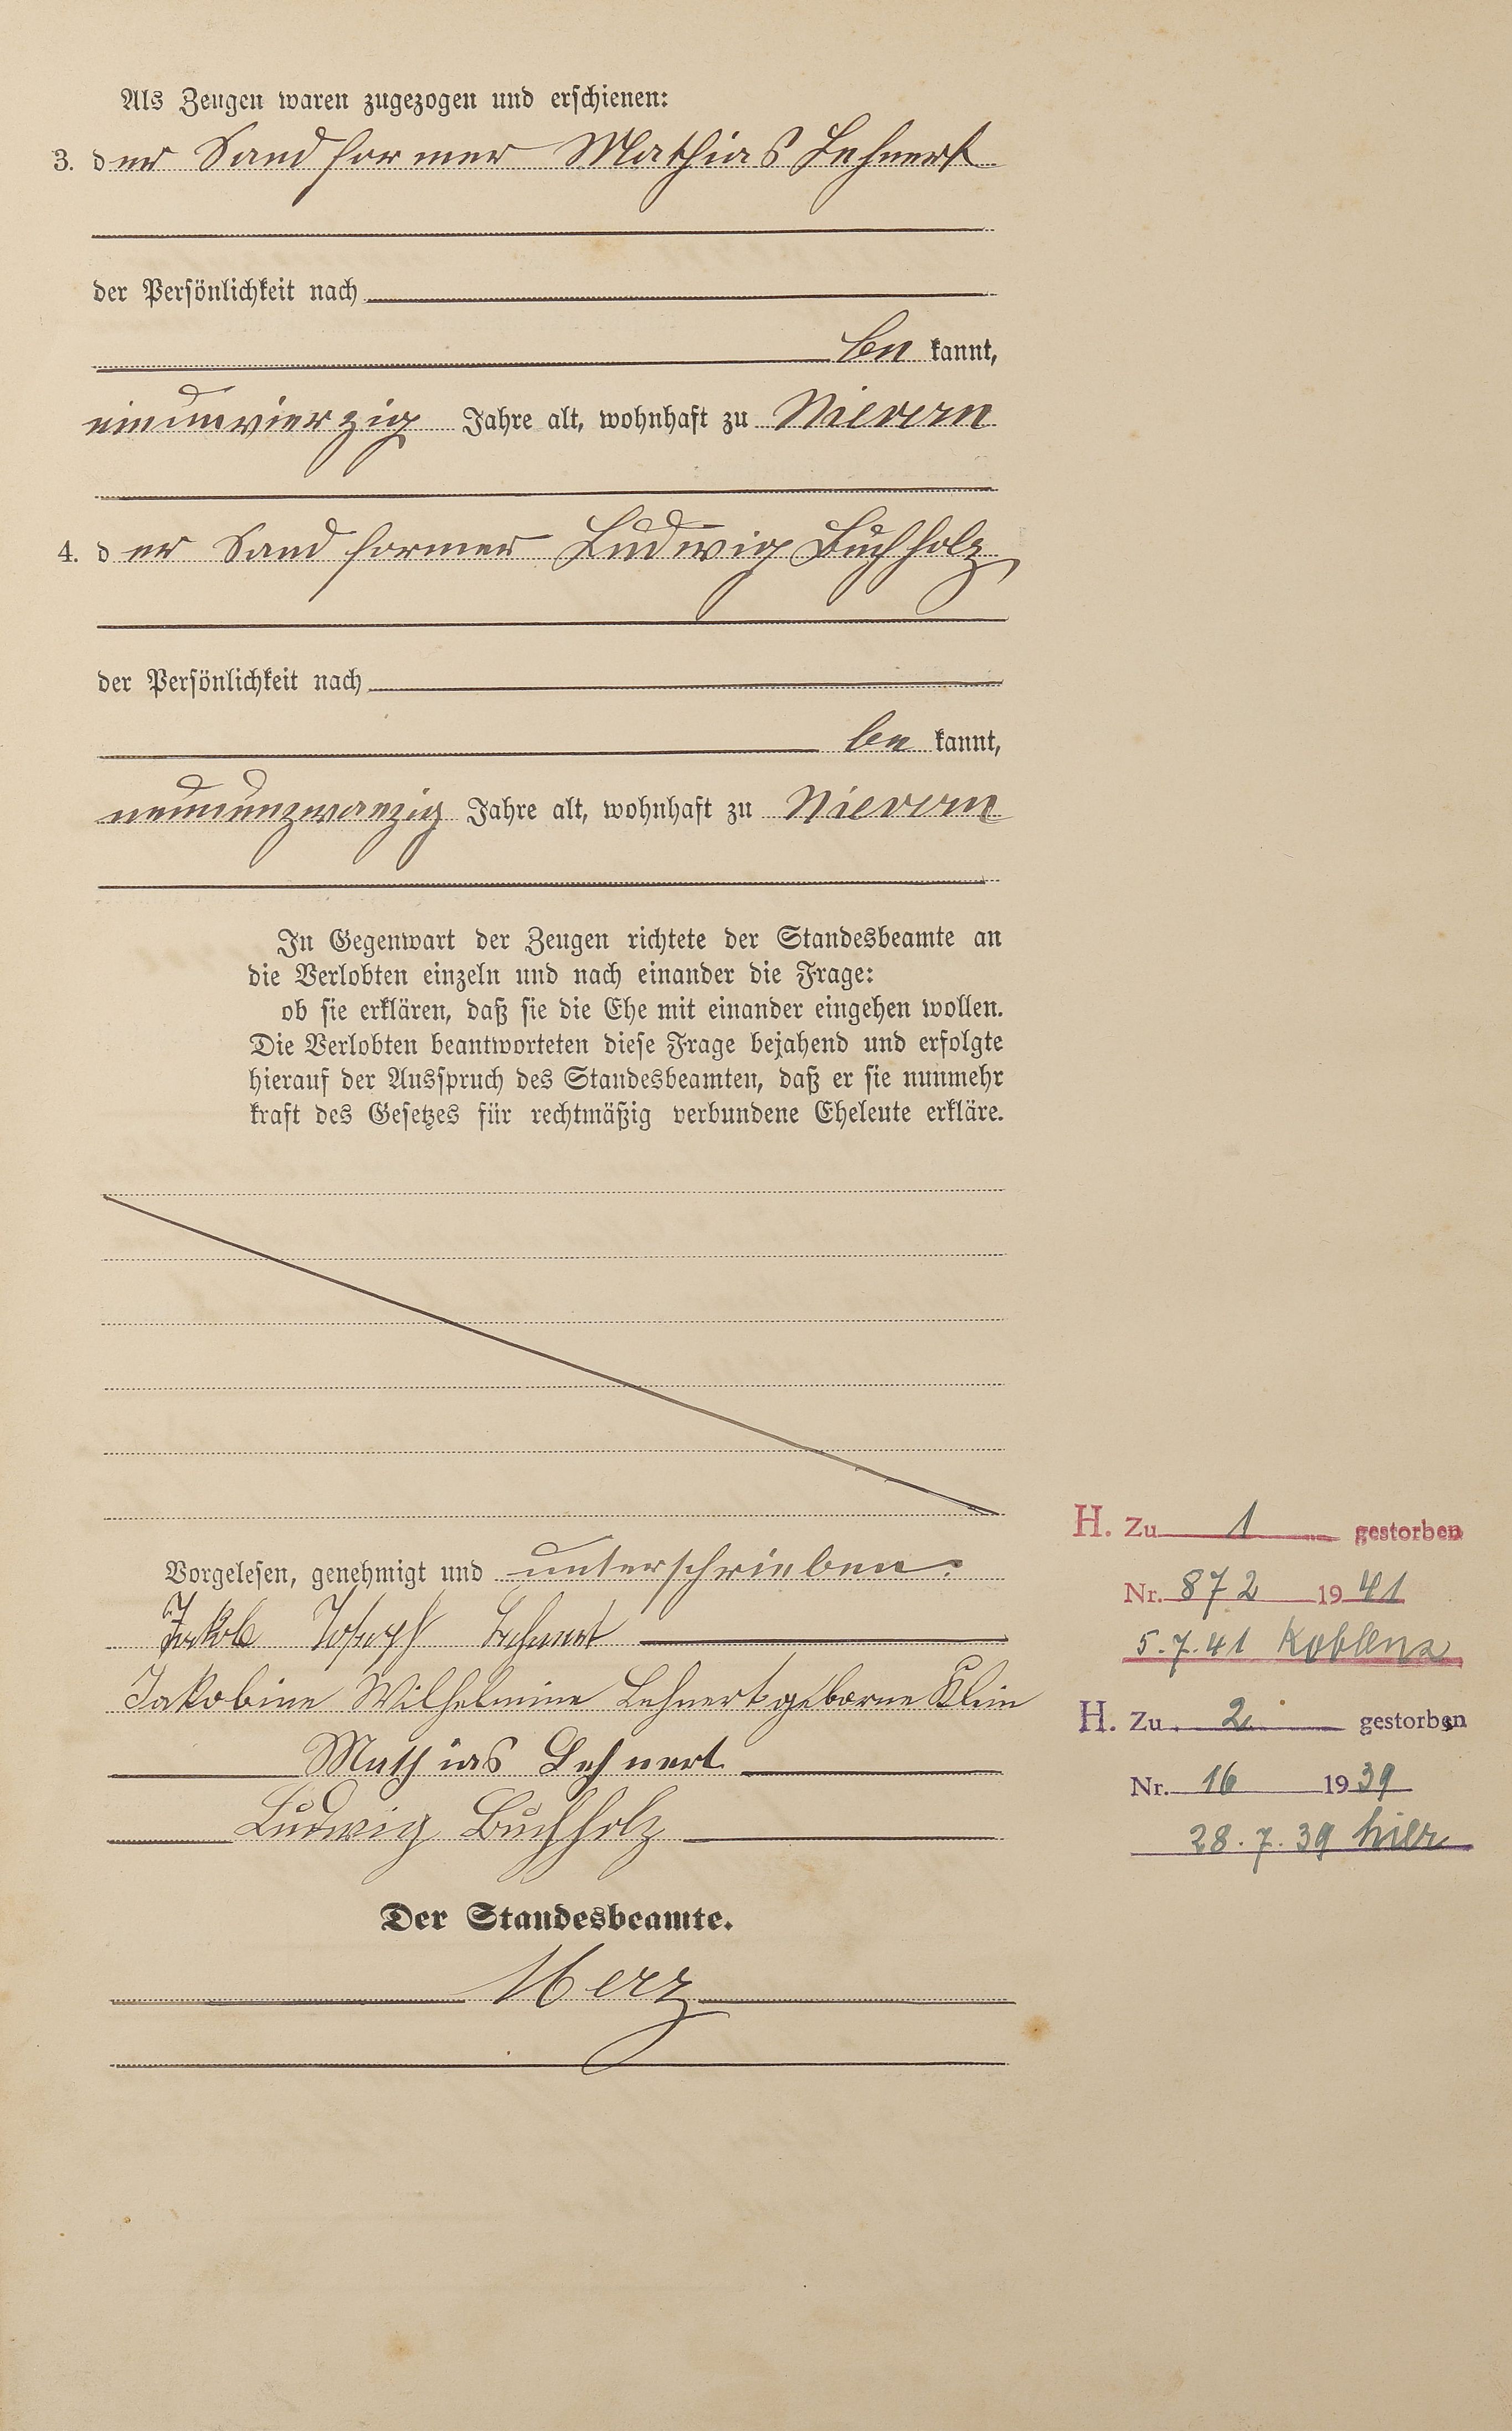 Als Zeugen waren zugezogen und erschienen:
3. der Sandformer Mathias Lehnert
der Persönlichkeit nach
be kannt,
einunvierzig Jahre alt, wohnhaft zu Nievern
4. der Sandformer Ludwig Buchholz
der Persönlichkeit nach
be kannt,
neunundzwanzig Jahre alt, wohnhaft zu Nievern
In Gegenwart der Zeugen richtete der Standesbeamte an
die Verlobten einzeln und nach einander die Frage:
ob sie erklären, daß sie die Ehe mit einander eingehen wollen.
Die Verlobten beantworteten diese Frage bejahend und erfolgte
hierauf der Ausspruch des Standesbeamten, daß er sie nunmehr
kraft des Gesetzes für rechtmäßig verbundene Eheleute erkläre.
Vorgelesen, genehmigt und unterschrieben.
Jakob Joseph Lehnert
Jakobine Wilhelmine Lehnert geborne Klein
Mathias Lehnert
Ludwig Buchholz
Der Standesbeamte.
Merz
H. Zu 1 gestorben
Nr. 872 1941
5.7.41 Koblenz
H. Zu 2 gestorben
Nr. 16 1939
28.7.39 hier